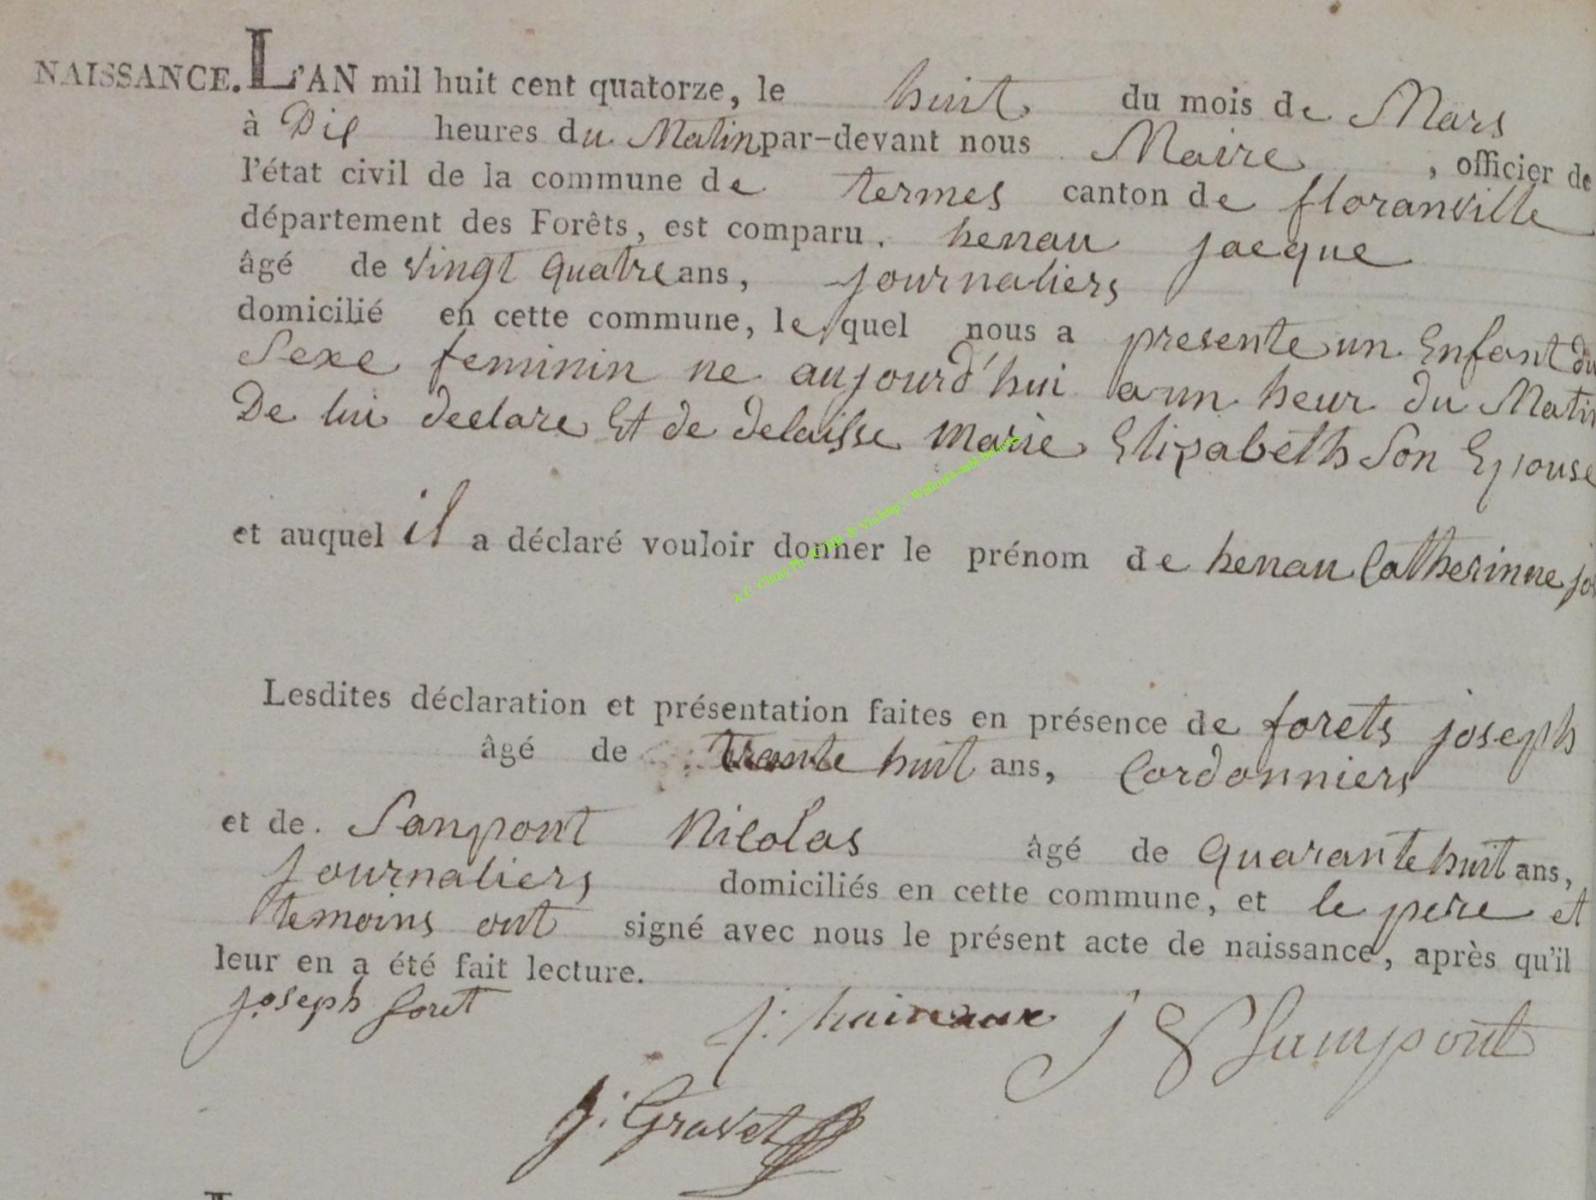 NAISSANCE. L'AN mil huit cent quatorze, le huit du mois de Mars
à Dix heures du Matin par-devant nous Maire , officier de
l'état civil de la commune de termes canton de floranville
département des Forêts, est comparu. henau jacque
âgé de vingt quatre ans, journaliers
domicilié en cette commune, lequel nous a presente un Enfant du
Sexe feminin ne aujourd'hui a un heur du Matin
De lui declare Et de delaisse marie Elizabeth Son Epouse
et auquel il a déclaré vouloir donner le prénom de henau Catherinne
Lesdites déclaration et présentation faites en présence de forets joseph
âgé de trante huit ans, Cordonniers
et de. Sanpont Nicolas âgé de quarante huit ans,
journaliers domiciliés en cette commune, et le pere et
temoins ont signé avec nous le présent acte de naissance, après qu'il
leur en a été fait lecture.
joseph foret j: haineaux J Sampont
j: Gravet